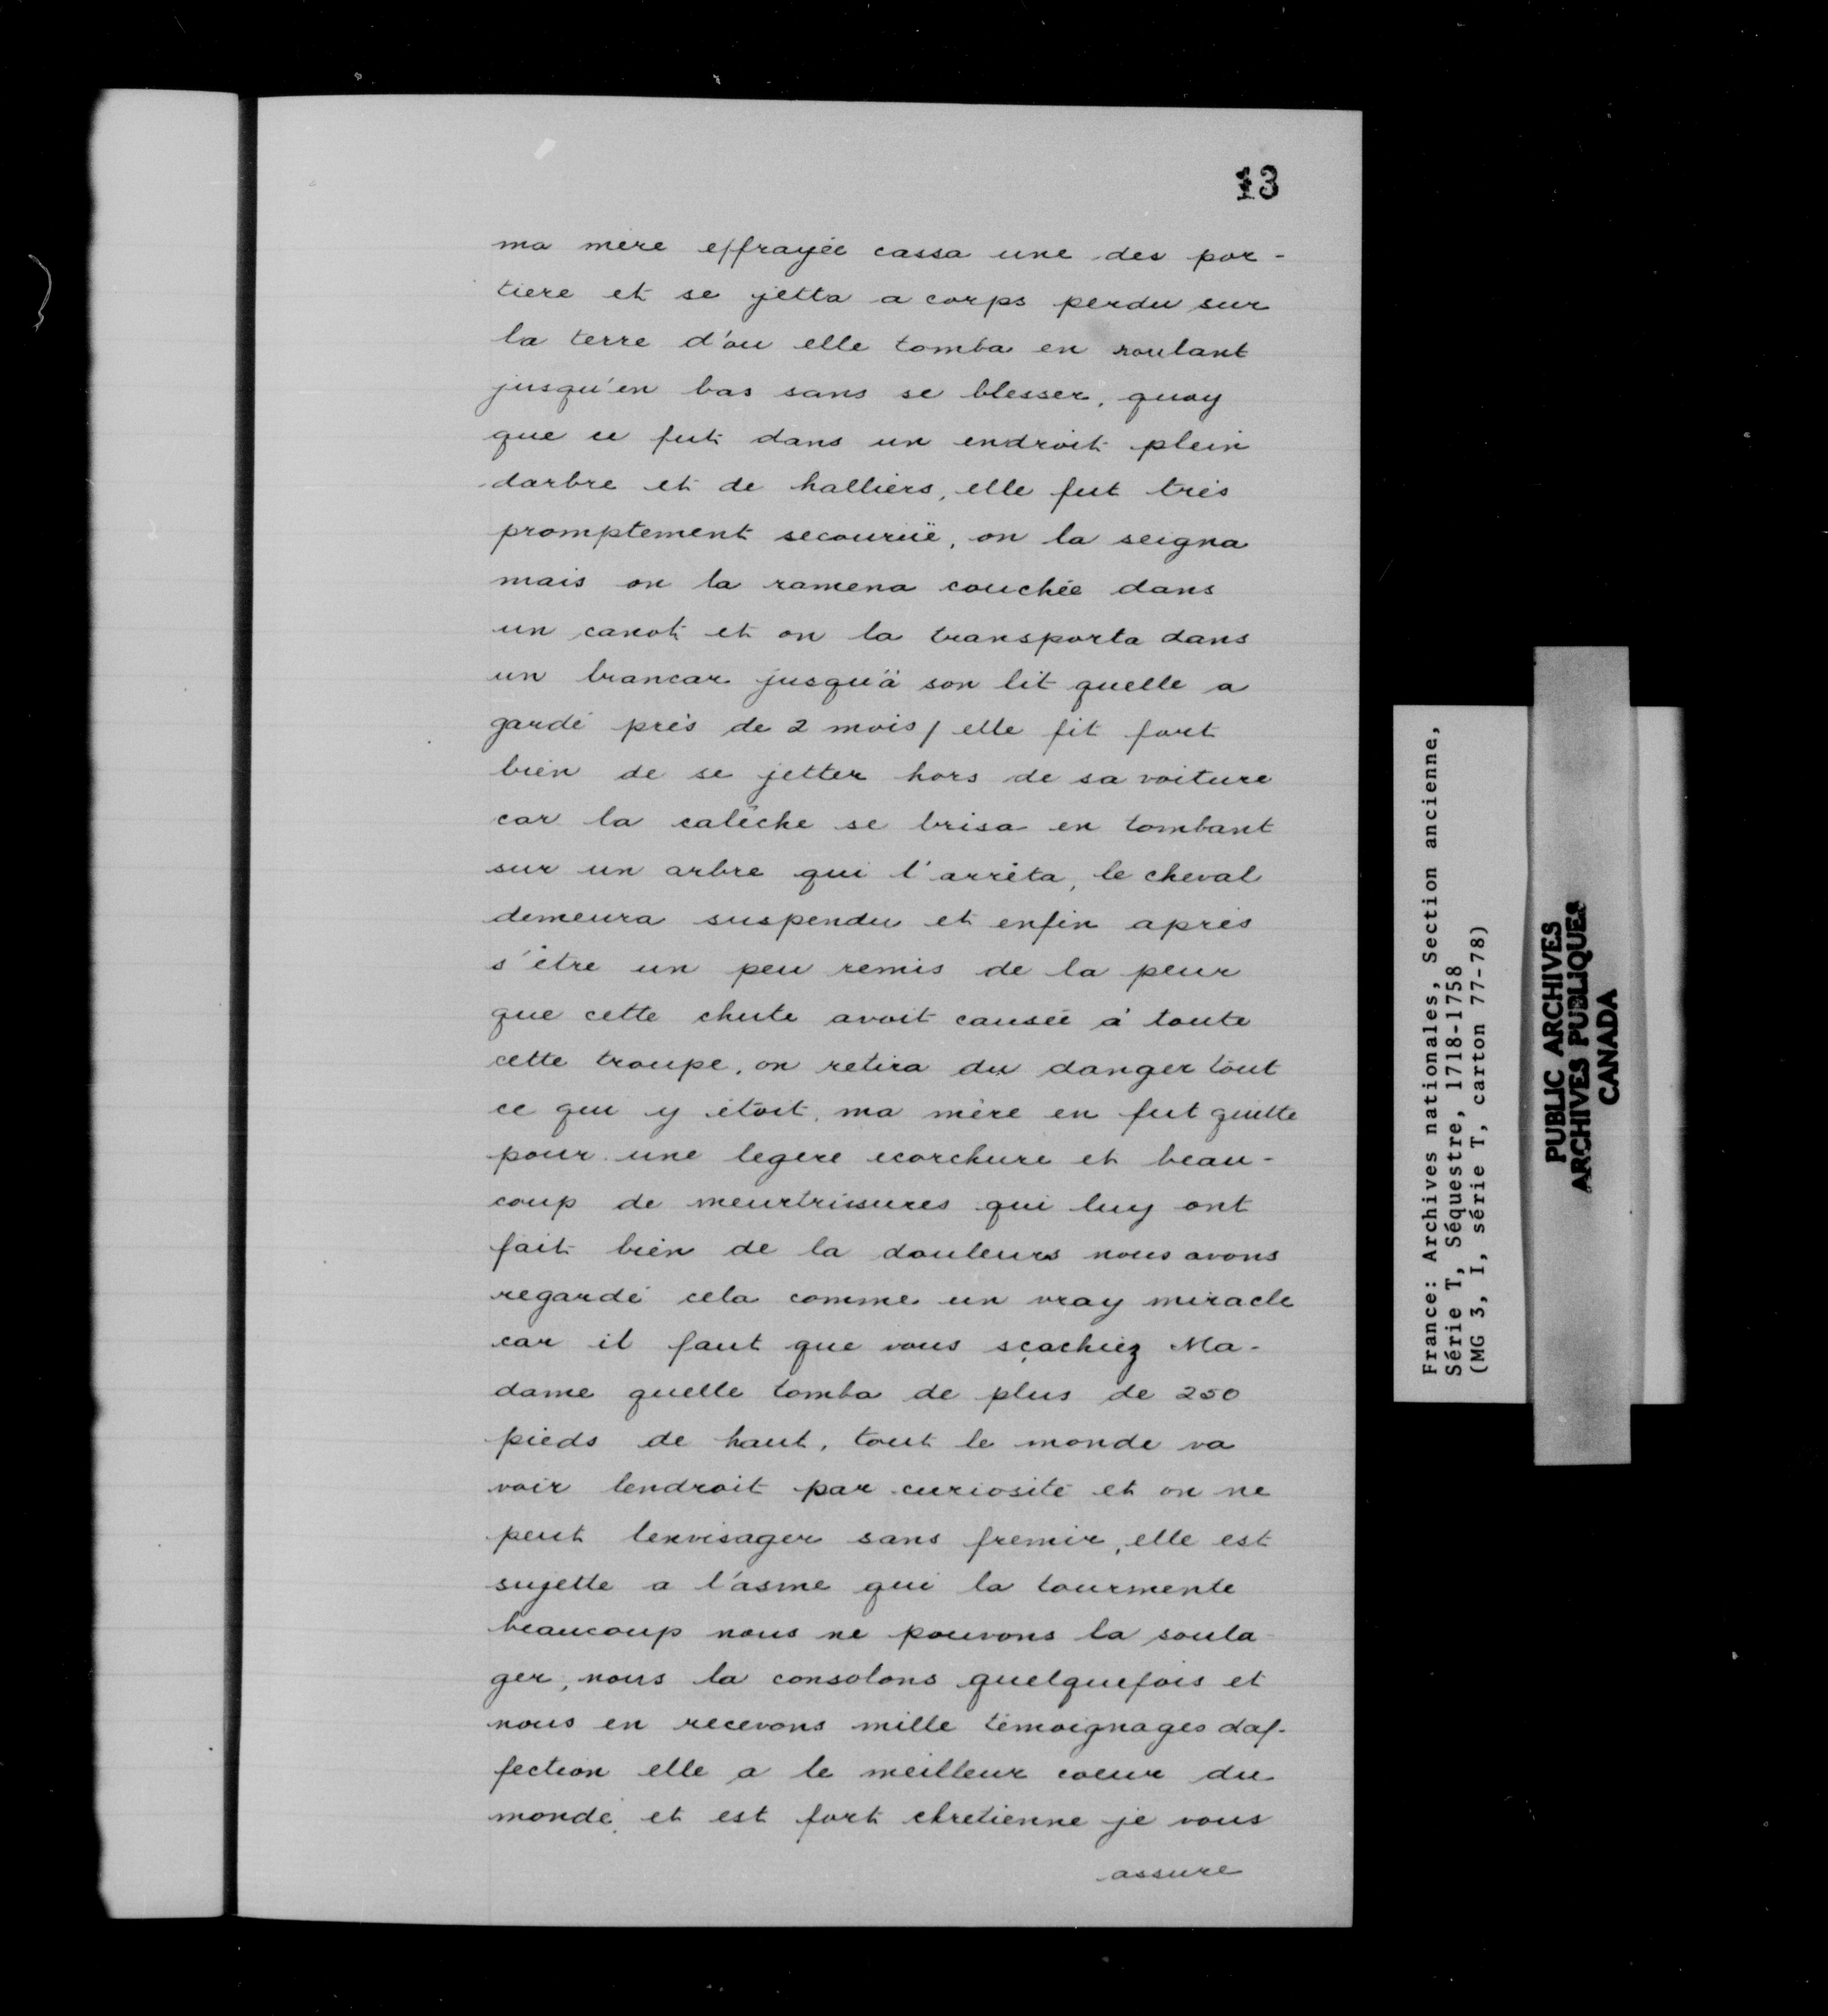 13
ma mère effrayée cassa une des por-
tiere et se jetta a corps perdu sur
la terre d'ou elle tomba en roulant
jusqu'en bas sans se blesser, quoy
que ce fut dans un endroit plein
darbre et de halliers, elle fut très
promptement secouruë, on la seigna
mais on la ramena couchée dans
un canot et on la transporta dans
un brancar jusqu'à son lit quelle a
gardé près de 2 mois / elle fit fort
bien de se jetter hors de sa voiture
car la calêche se brisa en tombant
sur un arbre qui l'arrêta, le cheval
demeura suspendu et enfin après
s'être un peu remis de la peur
que cette chute avoit causée à toute
cette troupe, on retira du danger tout
ce qui y étoit, ma mère en fut quitte
pour une legere ecorchure et beau-
coup de meurtrissures qui luy ont
fait bien de la douleurs nous avons
regardé cela comme un vray miracle
car il faut que vous sçachiez Ma-
dame quelle tomba de plus de 250
pieds de haut, tout le monde va
voir lendroit par curiosité et on ne
peut lenvisager sans fremir, elle est
sujette a l'asme qui la tourmente
beaucoup nous ne pouvons la soula-
ger, nous la consolons quelquefois et
nous en recevons mille témoignages daf-
fection elle a le meilleur coeur du
monde, et est fort chretienne je vous
assure
France: Archives nationales, Section ancienne,
Série T, Séquestre, 1718-1758
(MG 3, I, série T, carton 77-78)
PUBLIC ARCHIVES
ARCHIVES PUBLIQUES
CANADA